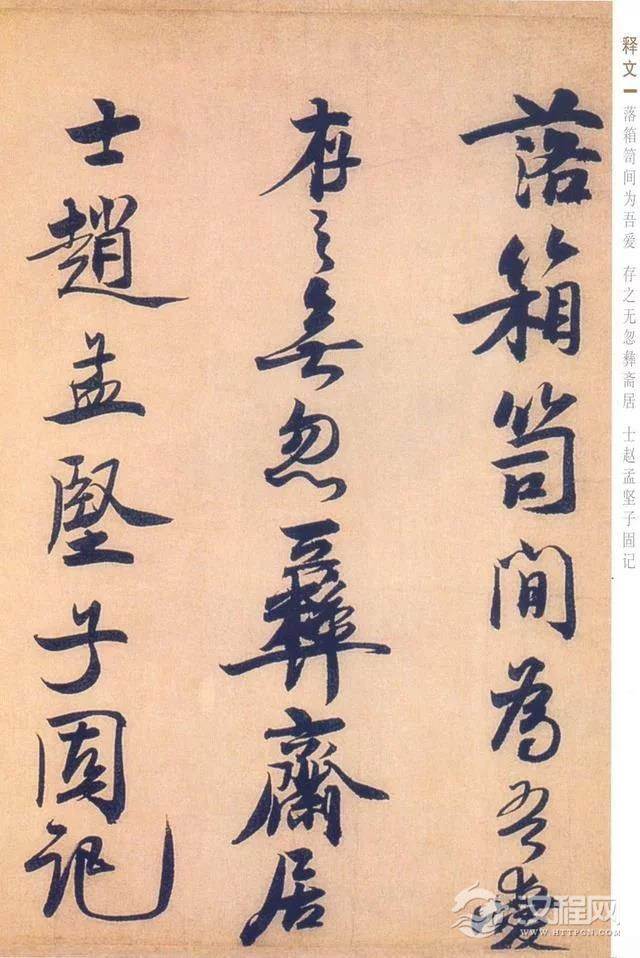 落箱笥間為吾愛
存之無忽彝齋居
士趙孟堅子固記
释文 落箱笥间为吾爱 存之无忽彝斋居 士赵孟坚子固记
汉程网
WWW.HTTPCN.COM